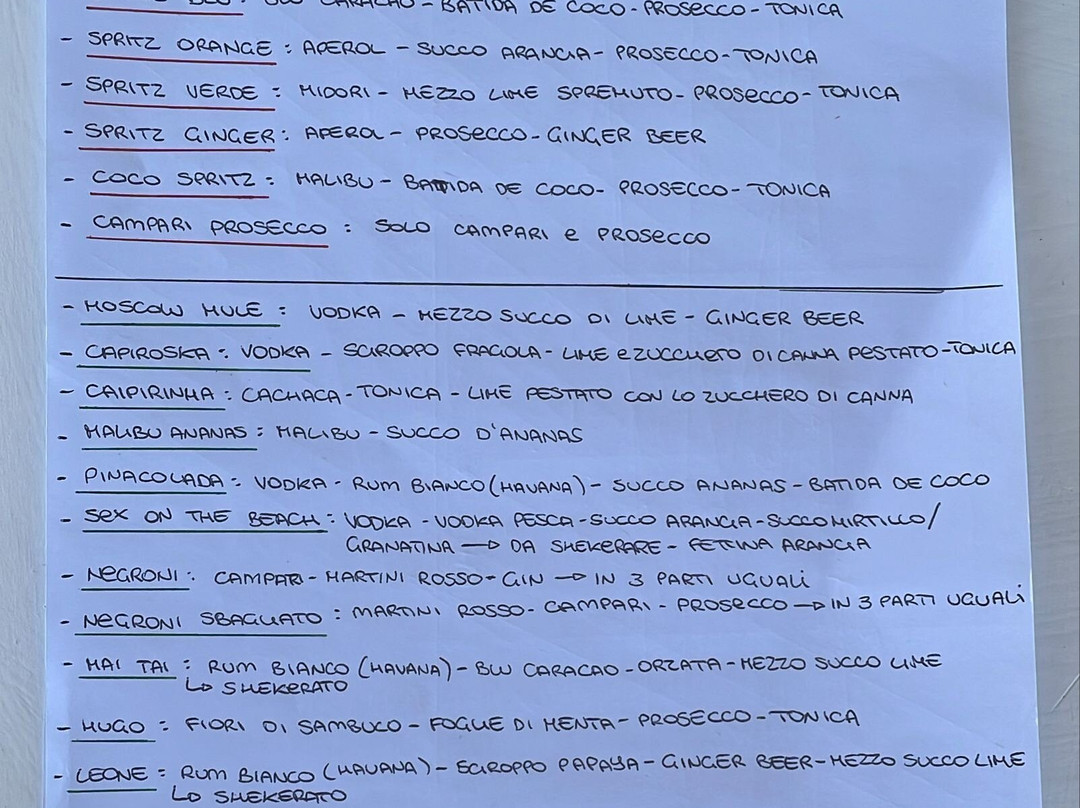 CARACAO - BATIDA DE COCO - PROSECCO - TONICA
- SPRITZ ORANGE : APEROL - SUCCO ARANCIA - PROSECCO - TONICA
- SPRITZ VERDE : MIDORI - MEZZO LIME SPREMUTO - PROSECCO - TONICA
- SPRITZ GINGER : APEROL - PROSECCO - GINGER BEER
- COCO SPRITZ : MALIBU - BATIDA DE COCO - PROSECCO - TONICA
- CAMPARI PROSECCO : SOLO CAMPARI e PROSECCO
- MOSCOW MULE : VODKA - MEZZO SUCCO DI LIME - GINGER BEER
- CAPIROSKA : VODKA - SCIROPPO FRAGOLA - LIME e ZUCCHERO DI CANNA PESTATO - TONICA
- CAIPIRINHA : CACHACA - TONICA - LIME PESTATO CON LO ZUCCHERO DI CANNA
- MALIBU ANANAS : MALIBU - SUCCO D'ANANAS
- PINACOLADA : VODKA - RUM BIANCO (HAVANA) - SUCCO ANANAS - BATIDA DE COCO
- SEX ON THE BEACH : VODKA - VODKA PESCA - SUCCO ARANCIA - SUCCO MIRTILLO /
GRANATINA → DA SHEKERARE - FETTINA ARANCIA
- NEGRONI : CAMPARI - MARTINI ROSSO - GIN → IN 3 PARTI UGUALI
- NEGRONI SBAGLIATO : MARTINI ROSSO - CAMPARI - PROSECCO → IN 3 PARTI UGUALI
- MAI TAI : RUM BIANCO (HAVANA) - BLU CARACAO - ORZATA - MEZZO SUCCO LIME
↳ SHEKERATO
- HUGO : FIORI DI SAMBUCO - FOGLIE DI MENTA - PROSECCO - TONICA
- LEONE : RUM BIANCO (HAVANA) - SCIROPPO PAPAYA - GINGER BEER - MEZZO SUCCO LIME
↳ SHEKERATO